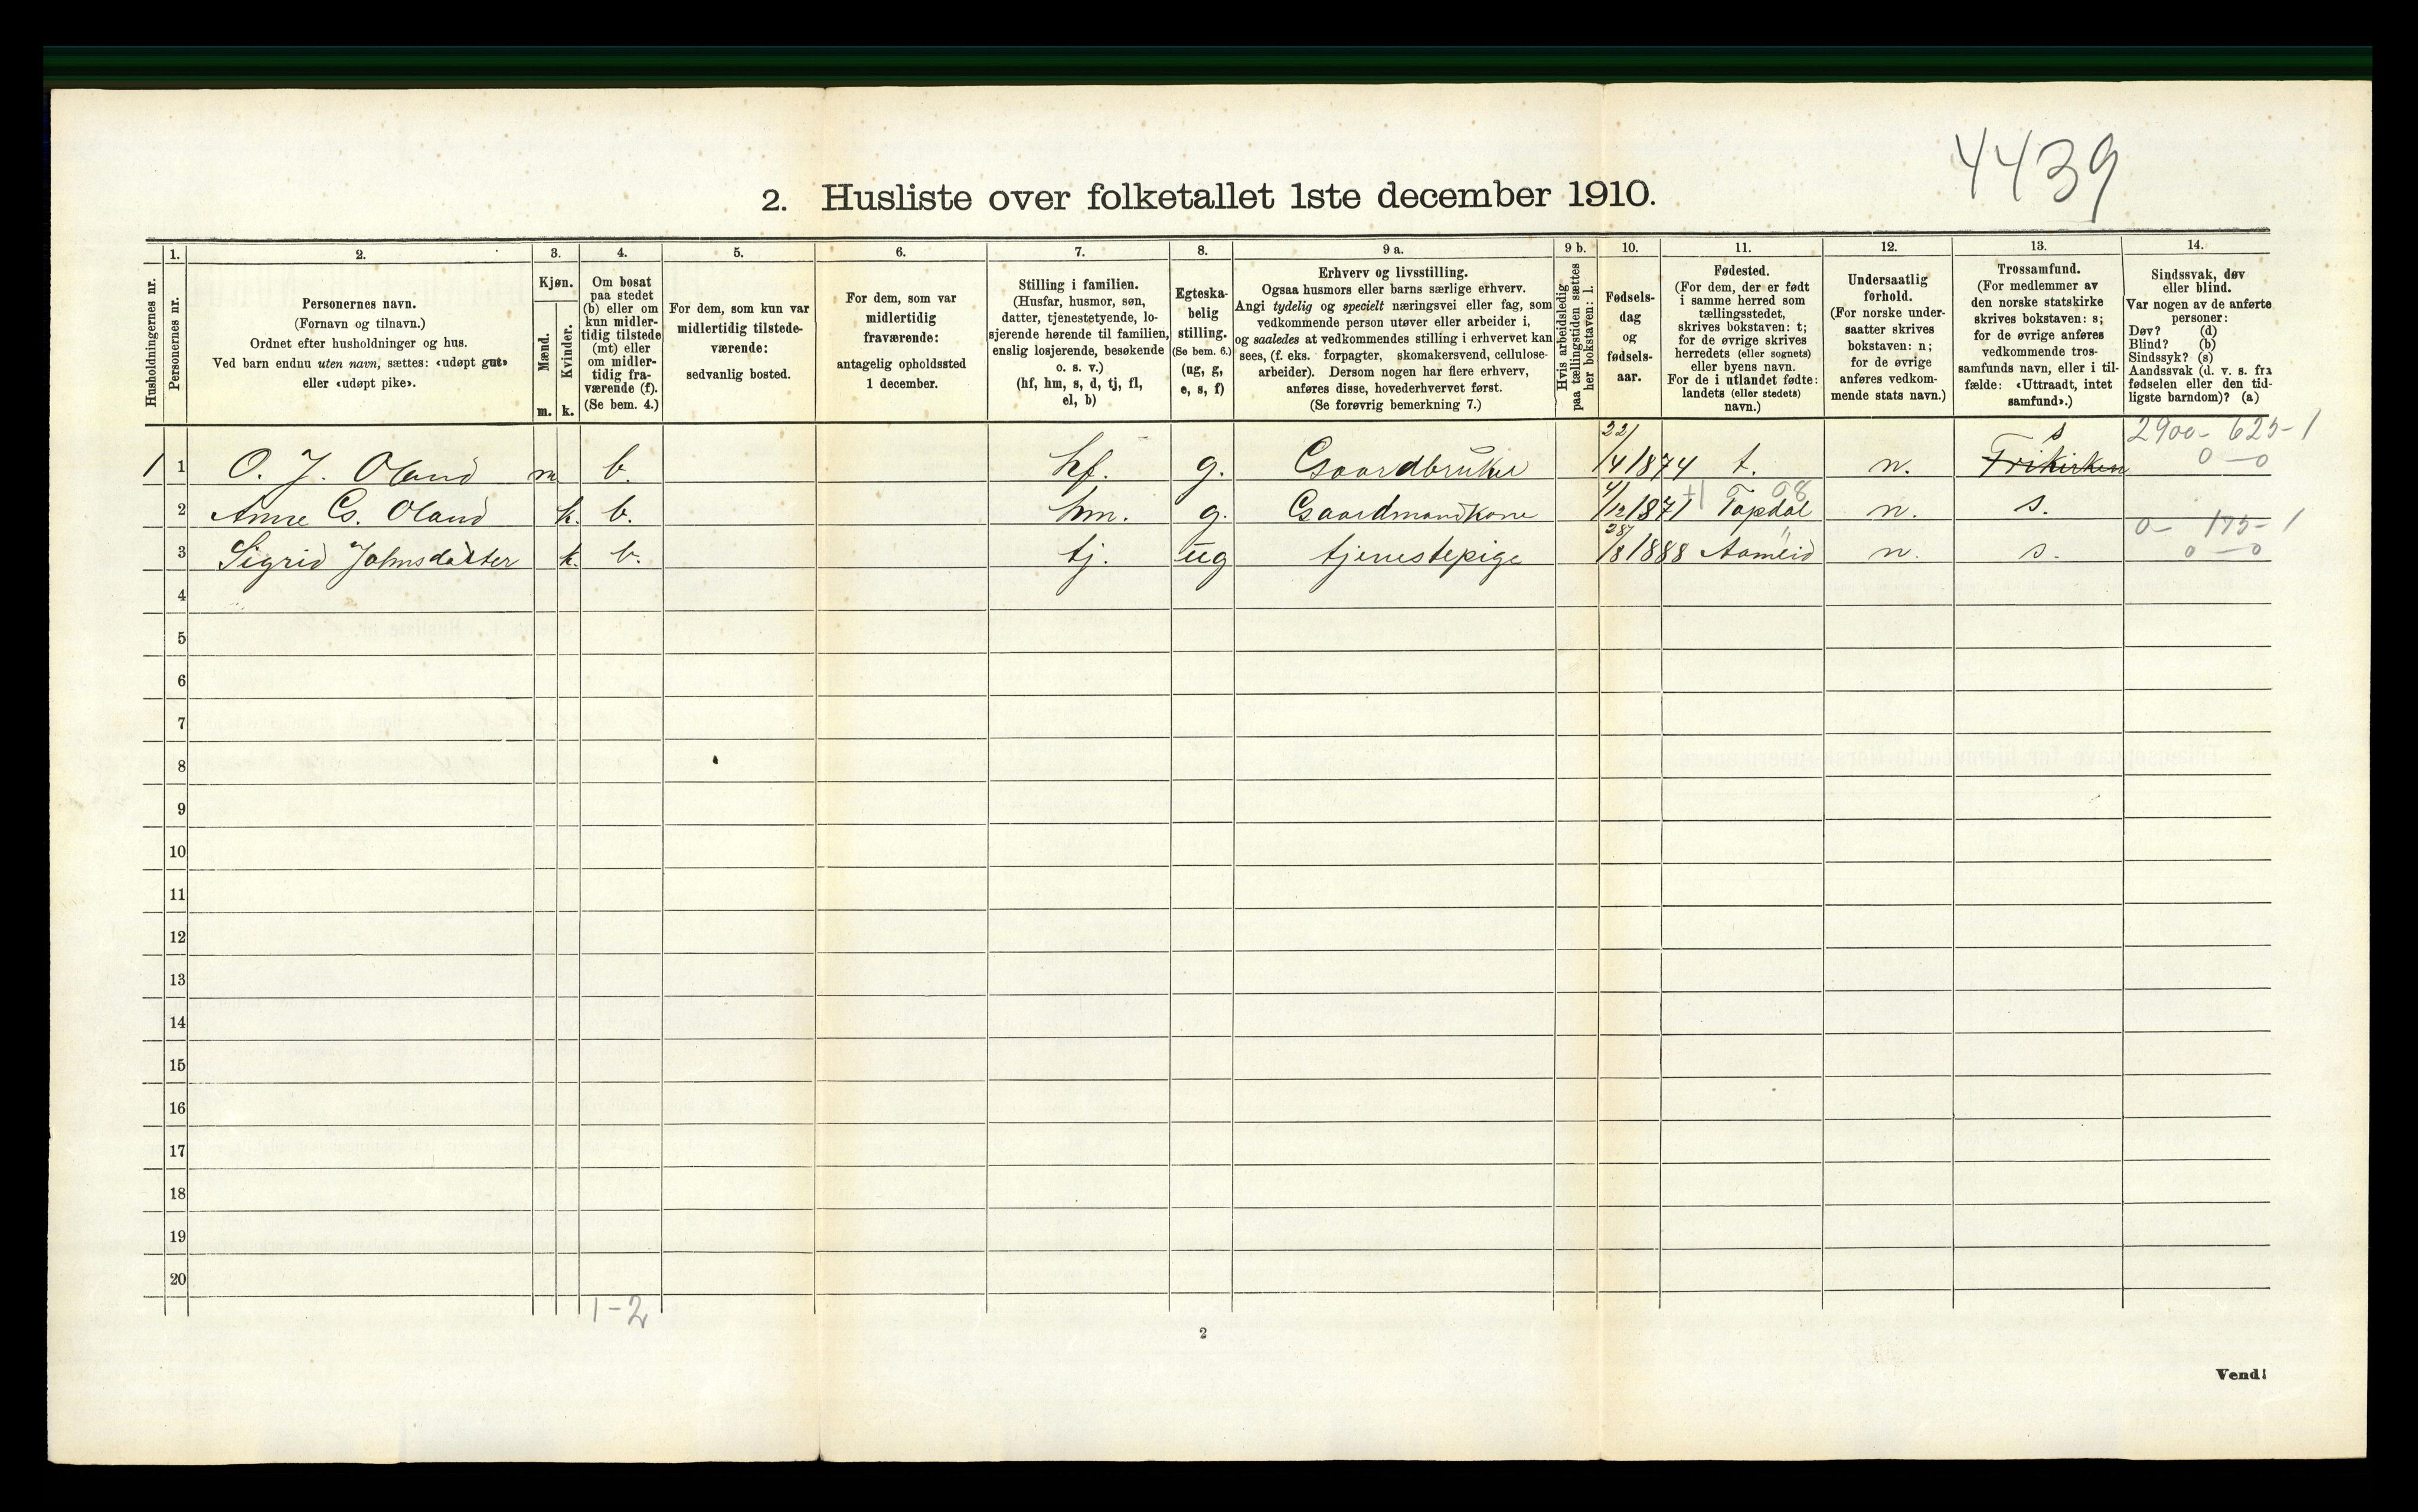 4439
2. Husliste over folketallet 1ste december 1910.
Husholdningernes nr.
1. Personernes nr.
2. Personernes navn.
(Fornavn og tilnavn.)
Ordnet efter husholdninger og hus.
Ved barn endnu uten navn, sættes: «udøpt gut»
eller «udøpt pike».
3. Kjøn.
Mænd. m.
Kvinder. k.
4. Om bosat
paa stedet
(b) eller om
kun midler-
tidig tilstede
(mt) eller
om midler-
tidig fra-
værende (f).
(Se bem. 4.)
5. For dem, som kun var
midlertidig tilstede-
værende:
sedvanlig bosted.
6. For dem, som var
midlertidig
fraværende:
antagelig opholdssted
1 december.
7. Stilling i familien.
(Husfar, husmor, søn,
datter, tjenestetyende, lo-
sjerende hørende til familien,
enslig losjerende, besøkende
o. s. v.)
(hf, hm, s, d, tj, fl,
el, b)
8. Egteska-
belig
stilling.
(Se bem. 6.)
(ug, g,
e, s, f)
9 a. Erhverv og livsstilling.
Ogsaa husmors eller barns særlige erhverv.
Angi tydelig og specielt næringsvei eller fag, som
vedkommende person utøver eller arbeider i,
og saaledes at vedkommendes stilling i erhvervet kan
sees, (f. eks. forpagter, skomakersvend, cellulose-
arbeider). Dersom nogen har flere erhverv,
anføres disse, hovederhvervet først.
(Se forøvrig bemerkning 7.)
9 b. Hvis arbeidsledig
paa tællingstiden sættes
her bokstaven: l.
10. Fødsels-
dag
og
fødsels-
aar.
11. Fødested.
(For dem, der er født
i samme herred som
tællingsstedet,
skrives bokstaven: t;
for de øvrige skrives
herredets (eller sognets)
eller byens navn.
For de i utlandet fødte:
landets (eller stedets)
navn.)
12. Undersaatlig
forhold.
(For norske under-
saatter skrives
bokstaven: n;
for de øvrige
anføres vedkom-
mende stats navn.)
13. Trossamfund.
(For medlemmer av
den norske statskirke
skrives bokstaven: s;
for de øvrige anføres
vedkommende tros-
samfunds navn, eller i til-
fælde: «Uttraadt, intet
samfund».)
14. Sindssvak, døv
eller blind.
Var nogen av de anførte
personer:
Døv? (d)
Blind? (b)
Sindssyk? (s)
Aandssvak (d. v. s. fra
fødselen eller den tid-
ligste barndom)? (a)
1 1 O. J. Oland m b. hf. g. Gaardbruker 22/4 1874 t. n. Frikirken s 2900- 625-1
0-0
2 Anne G. Oland k. b. hm. g. Gaardmandkone 4/12 1871 Topdal n. s.
3 Sigrid Johnsdatter k. b. tj. ug tjenestepige 28/8 1888 Aamlid n. s. 0- 175-1
0-0
4
5
6
7
8
9
10
11
12
13
14
15
16
17
18
19
20
1-2
2
Vend!